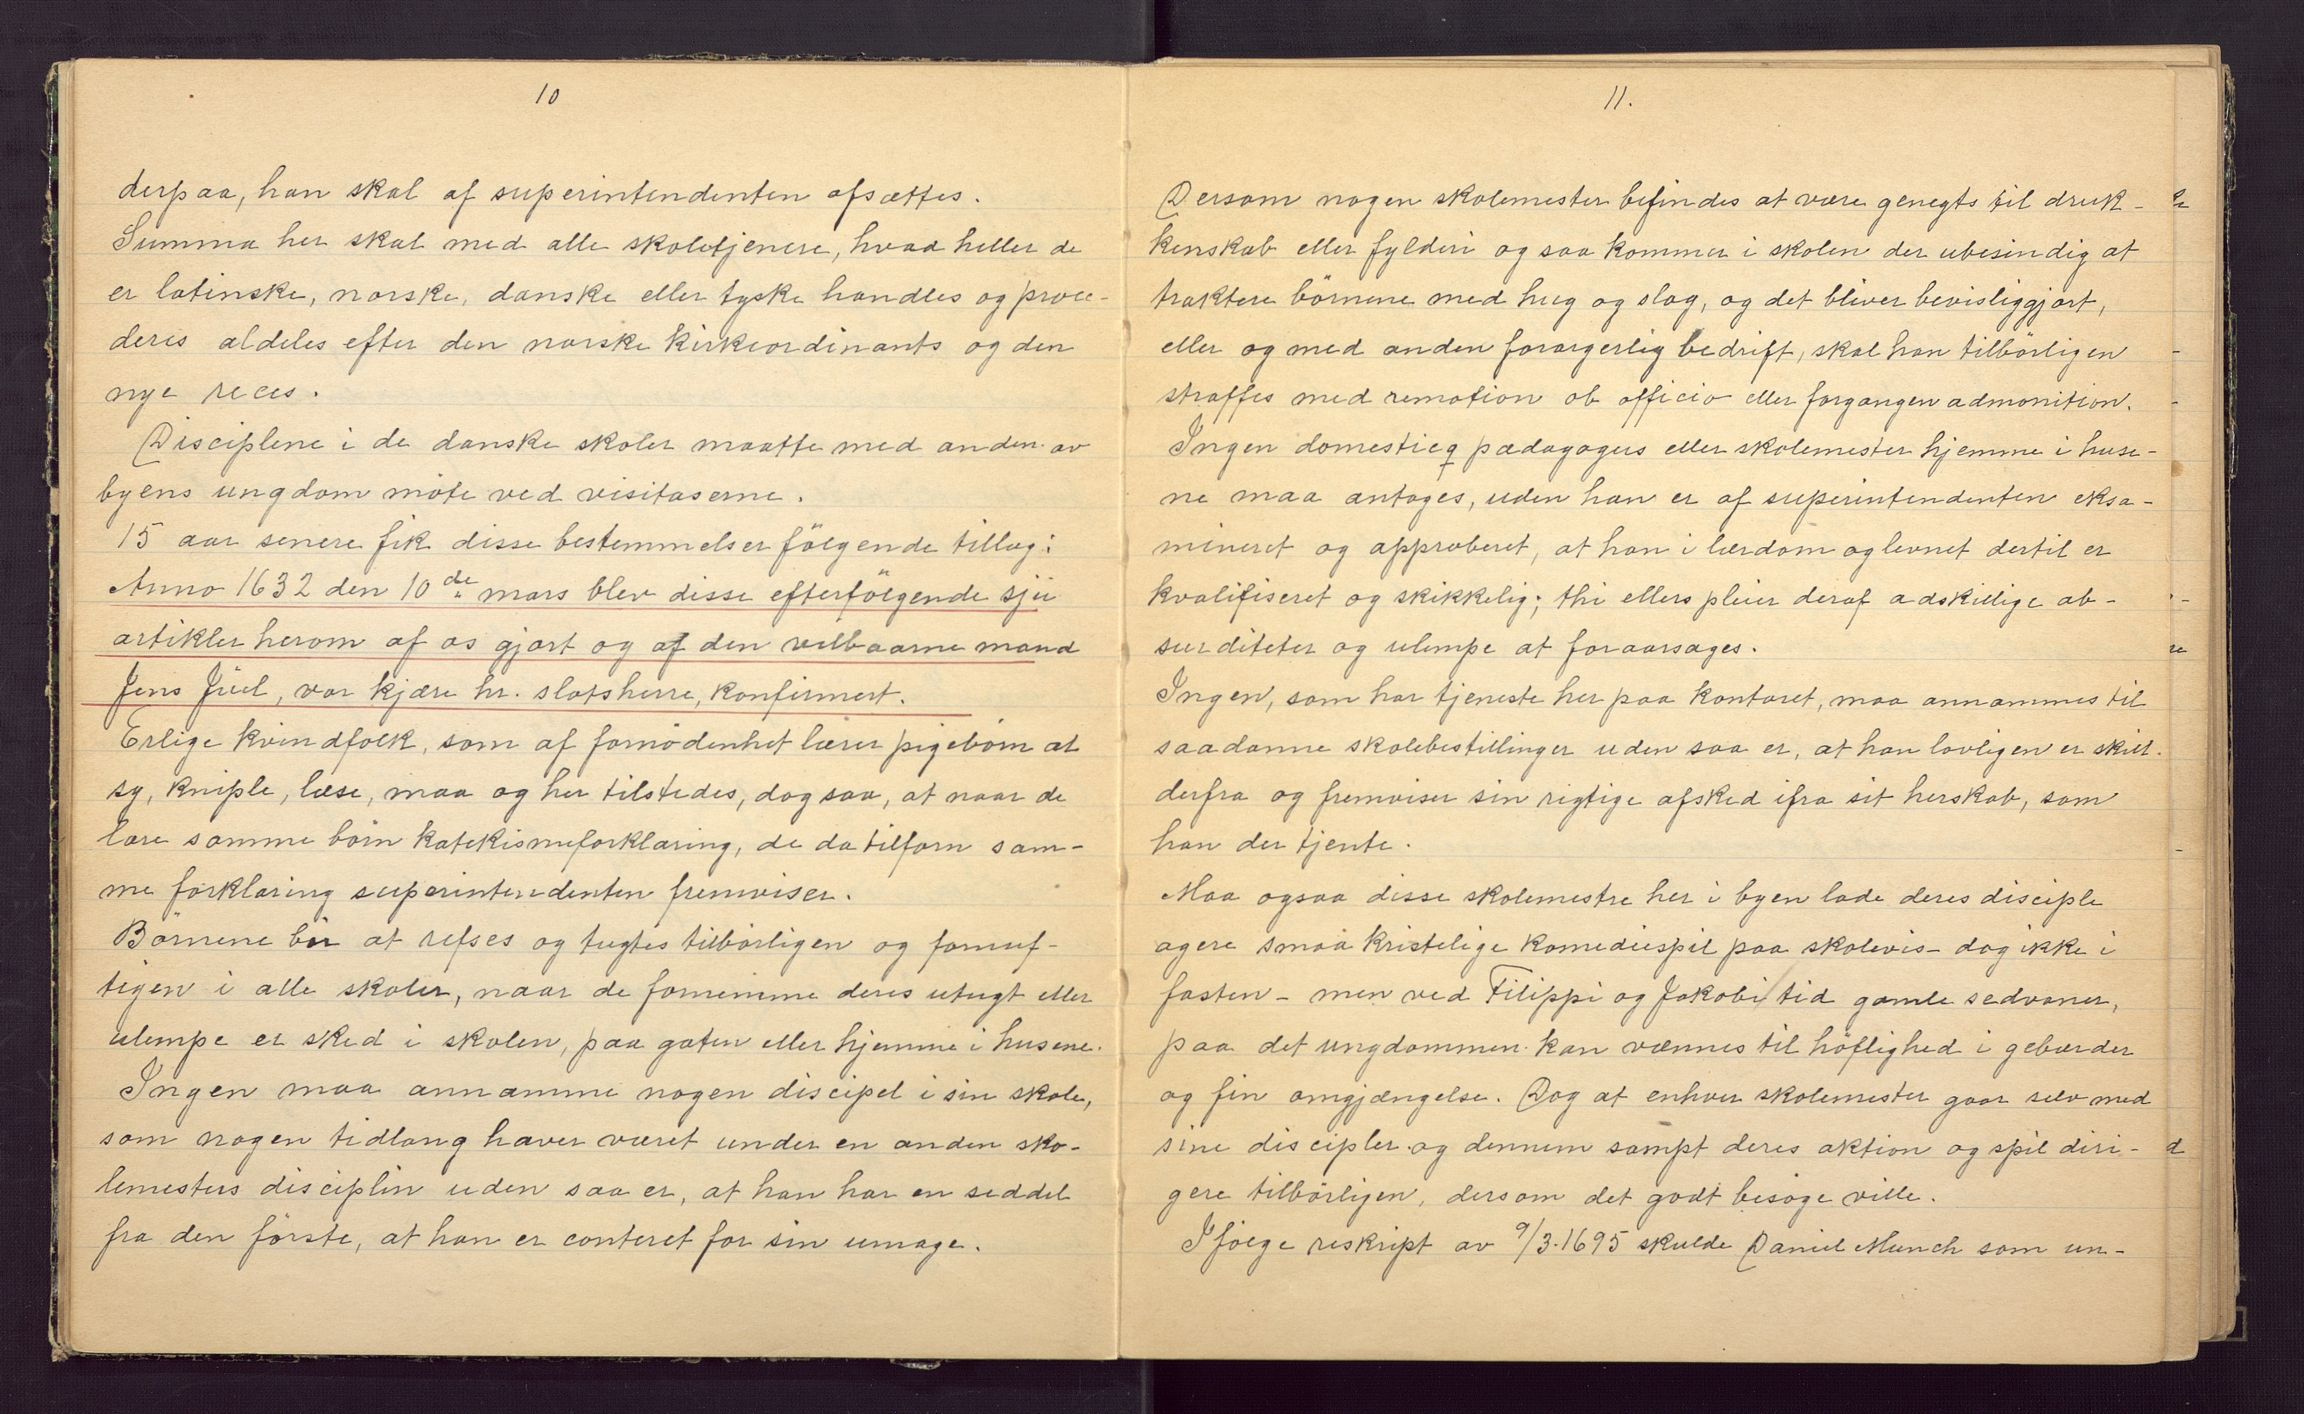 10
derpaa, han skal af superintendenten afsættes.
Summa her skal med alle skoletjenere, hvad heller de
er latinske, norske, danske eller tyske handles og proce-
deres aldeles efter den norske kirkeordinants og den
nye reces.
Disciplene i de danske skoler maatte med anden av
byens ungdom møte ved visitaserne.
15 aar senere fik disse bestemmelser følgende tillæg:
Anno 1632 den 10de mars blev disse efterfølgende sju
artikler herom af os gjort og af den velbaarne mand
Jens Juel, vor kjære hr. slotsherre, konfirmert.
Erlige kvindfolk, som af fornødenhet lærer pigebørn at
sy, kniple, læse, maa og her tilstedes, dog saa, at naar de
lære samme børn katekismeforklaring, de da tilforn sam-
me forklaring superintendenten fremviser.
Børnene bør at refses og tugtes tilbørligen og fornuf-
tigen i alle skoler, naar de fornemme deres utugt eller
ulempe er sked i skolen, paa gaten eller hjemme i husene.
Ingen maa annamme nogen discipel i sin skole,
som nogen tidlang haver været under en anden sko-
lemesters disciplin uden saa er, at han har en seddel
fra den første, at han er conteret for sin umage.
11.
Dersom nogen skolemester befindes at være genegts til druk-
kenskab eller fylderi og saa kommer i skolen der ubesindig at
traktere børnene med hug og slag, og det bliver bevisliggjort,
eller og med anden forargerlig bedrift, skal han tilbørligen
straffes med remotion ab officio eller forgangen admonition.
Ingen domesticq pædagogus eller skolemester hjemme i huse-
ne maa antages, uden han er af superintendenten eksa-
mineret og approberet, at han i lærdom og levnet dertil er
kvalifiseret og skikkelig; thi ellers pleier deraf adskillige ab-
surditeter og ulempe at foraarsages.
Ingen, som har tjeneste her paa kontoret, maa annammes til
saadanne skolebestillinger uden saa er, at han lovligen er skilt
derfra og fremviser sin rigtige afsked ifra sit herskab, som
han der tjente.
Maa ogsaa disse skolemestre her i byen lade deres disciple
agere smaa kristelige komediespil paa skolevis- dog ikke i
fasten - men ved Filippi og Jakobi tid gamle sedvaner,
paa det ungdommen kan vænnes til høflighed i gebærder
og fin omgjængelse. Dog at enhver skolemester gaar selv med
sine discipler og dennem sampt deres aktion og spil diri-
gere tilbørligen, dersom det godt besøge ville.
Ifølge reskript av 9/3.1695 skulde Daniel Munch som un-